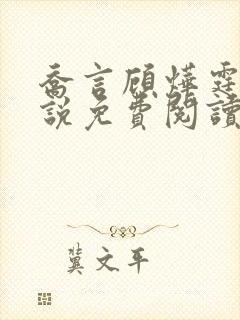 喬言顧燁霆
說免費閱讀
冀文平